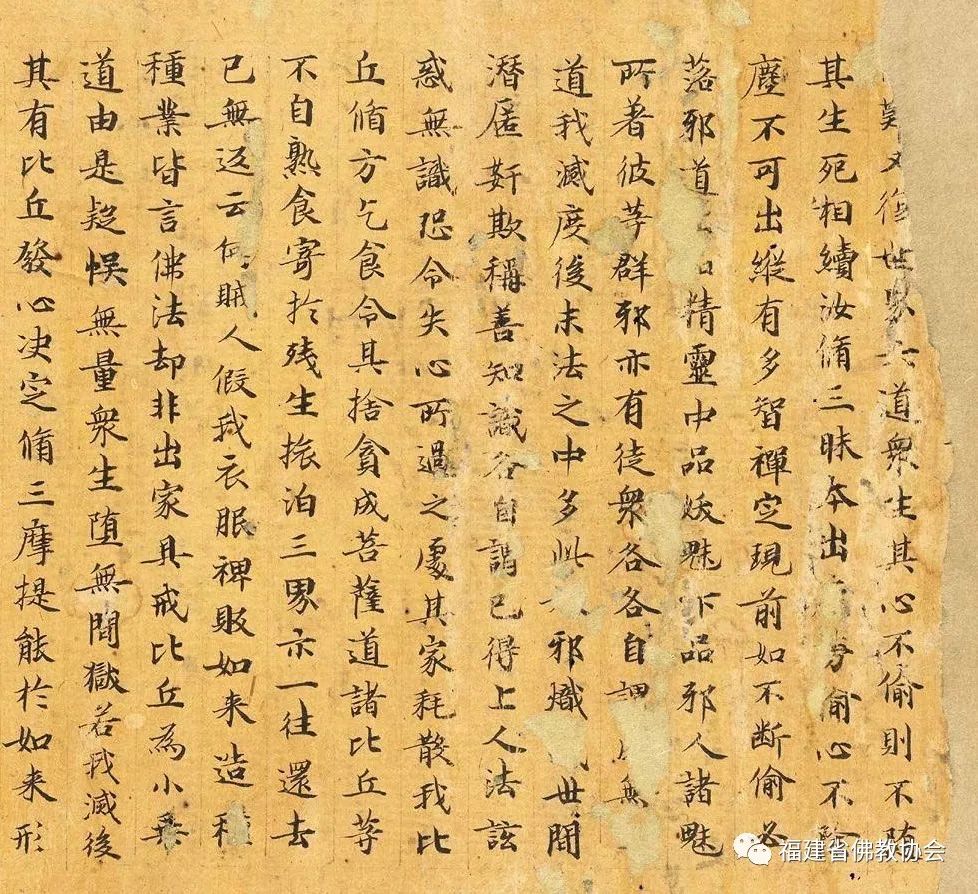 難又復世界六道衆生其心不偷則不随
其生死相續汝脩三昧本出勞偷心不除
塵不可出縱有多智禪定現前如不断偷必
落邪道品精靈中品妖魅下品邪人諸魅
所著彼等群邪亦有徒衆各各自謂無
道我滅度後末法之中多此邪熾世間
潛匿姧欺稱善知識各自謂己得上人法詃
惑無識恐令失心所過之處其家耗散我比
丘脩方乞食令其捨貪成菩薩道諸比丘等
不自熟食寄於殘生振泊三界示一往還去
已無返云何賊人假我衣服裨販如来造種
種業皆言佛法却非出家具戒比丘為小乘
道由是疑悞無量衆生堕無間獄若我滅後
其有比丘發心决定脩三摩提能於如来形
福建省佛教协会